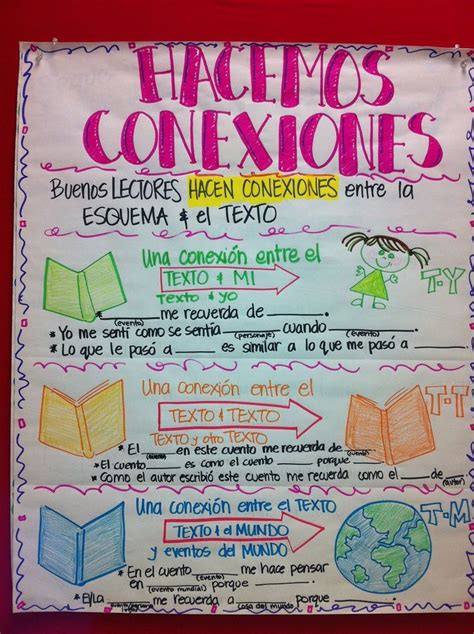 HACEMOS
CONEXIONES
BUENOS LECTORES HACEN CONEXIONES entre la
ESQUEMA & el TEXTO
Una conexión entre el
TEXTO & MI
Texto & yo
T-Y
* ____ me recuerda de ____.
(evento)
* Yo me sentí como se sentía ____ cuando ____.
(personaje) (evento)
* Lo que le pasó a ____ es similar a lo que me pasó a ____.
Una conexión entre el
TEXTO & TEXTO
TEXTO y otro TEXTO
T-T
* El ____ en este cuento me recuerda de ____.
* El cuento ____ es como el cuento ____ porque ____.
* Como el autor escribió este cuento me recuerda como el ____ de ____.
(autor)
Una conexión entre el TEXTO
TEXTO & el MUNDO
y eventos del MUNDO
T-M
* En el cuento ____ me hace pensar
(evento)
en ____ porque ____.
(evento mundial)
* El/La ____ me recuerda a ____ porque ____.
cosa del mundo